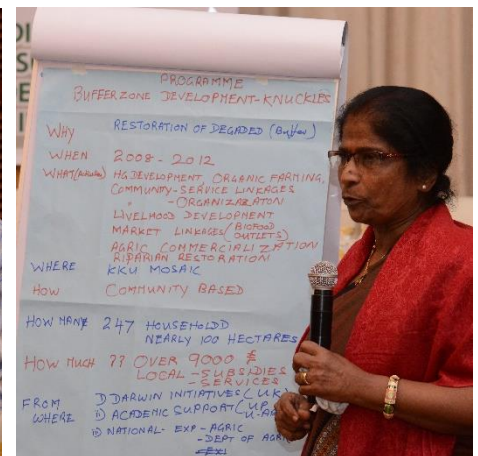 PROGRAMME
BUFFERZONE DEVELOPMENT-KNUCKLES
WHY RESTORATION OF DEGADED (Buffer)
WHEN 2008 - 2012
WHAT HG DEVELOPMENT, ORGANIC FARMING,
COMMUNITY-SERVICE LINKAGES
" - ORGANIZARATON
LIVELIHOOD DEVELOPMENT
MARKET LINKAGES (BIOFOOD
OUTLETS)
AGRIC COMMERCIALIZATION
RIPARIAN RESTORATION
WHERE KKU MOSAIC
HOW COMMUNITY BASED
HOW MANY 247 HOUSEHOLDD
NEARLY 100 HECTARES
HOW MUCH ?? OVER 9000 £
LOCAL - SUBSIDIES
- SERVICES
FROM WHERE I) DARWIN INITIATIVES (UK)
II) ACADEMIC SUPPORT (UP
U-AG
III) NATIONAL - EXP - AGRIC
- DEPT OF AGRI